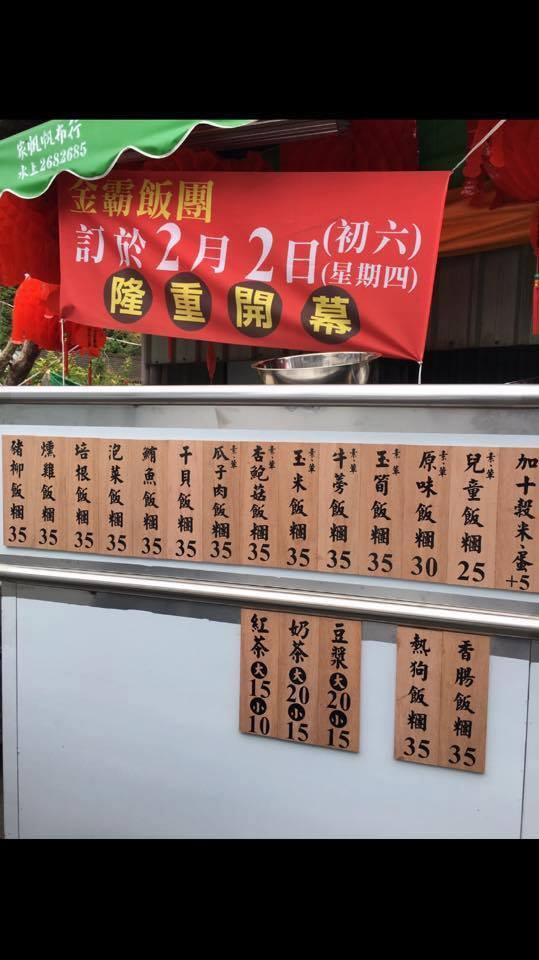 家帆帆布行
水上2682685
金霸飯團
訂於2月2日(初六)
(星期四)
隆重開幕
加十穀米、蛋+5
素、葷 兒童飯糰 25
素、葷 原味飯糰 30
素、葷 玉筍飯糰 35
素、葷 牛蒡飯糰 35
素、葷 玉米飯糰 35
素、葷 杏鮑菇飯糰 35
瓜子肉飯糰 35
干貝飯糰 35
鮪魚飯糰 35
泡菜飯糰 35
培根飯糰 35
燻雞飯糰 35
豬柳飯糰 35
香腸飯糰 35
熱狗飯糰 35
豆漿 大20 小15
奶茶 大20 小15
紅茶 大15 小10